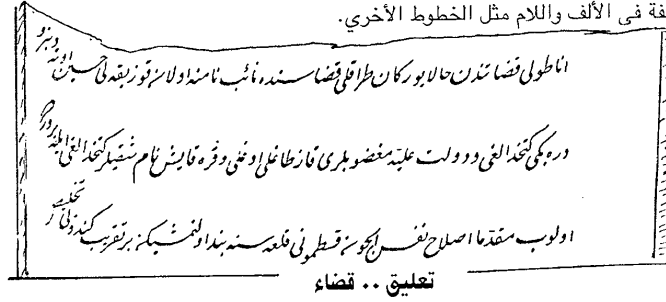 فة في الألف واللام مثل الخطوط الأخري.
اناطولى قضاتندن حالا بوركان طراقلى قضاسنده نائب نامنه اولان قوزيقه لى حسين
دره بكى كتخدالغى ودولت عليه مغضوبلرى قاز طاغلى اوغلى وقره قايش نام شقيلر كتخدالغى
اولوب مقدما اصلاح نفس ايچون قسطمونى قلعه سنه بند اولنمشيكن بر تقريب كندوى
تعليق .. قضاء